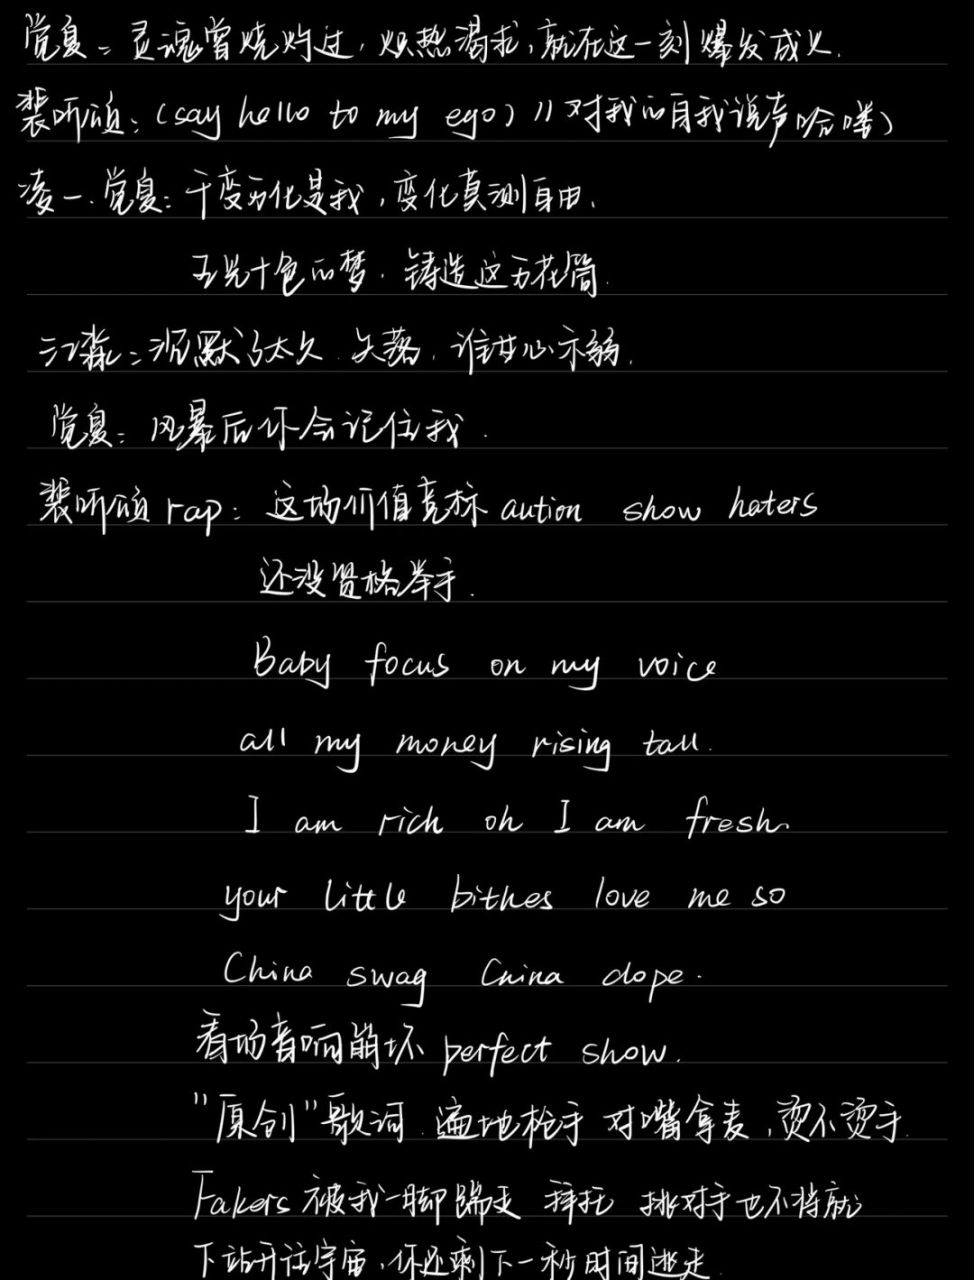 觉夏：灵魂曾烧灼过，炽热渴求，就在这一刻爆发成火.
裴听颂：（say hello to my ego）//对我的自我说声哈喽）
凌一.觉夏：千变万化是我，变化莫测自由.
五光十色的梦.铸造这万花筒.
江淼：沉默了太久.失落.谁甘心示弱.
觉夏：风暴后你会记住我.
裴听颂rap：这场价值竞标 aution show haters
还没资格举手.
Baby focus on my voice
all my money rising tall.
I am rich oh I am fresh
your little bithes love me so
China swag China dope.
看场音响崩坏 perfect show.
"原创"歌词.遍地枪手 对嘴拿麦，烫不烫手.
Fakers 被我一脚踹走 拜托 挑对手也不将就
下站开往宇宙，你还剩下一秒时间逃走.